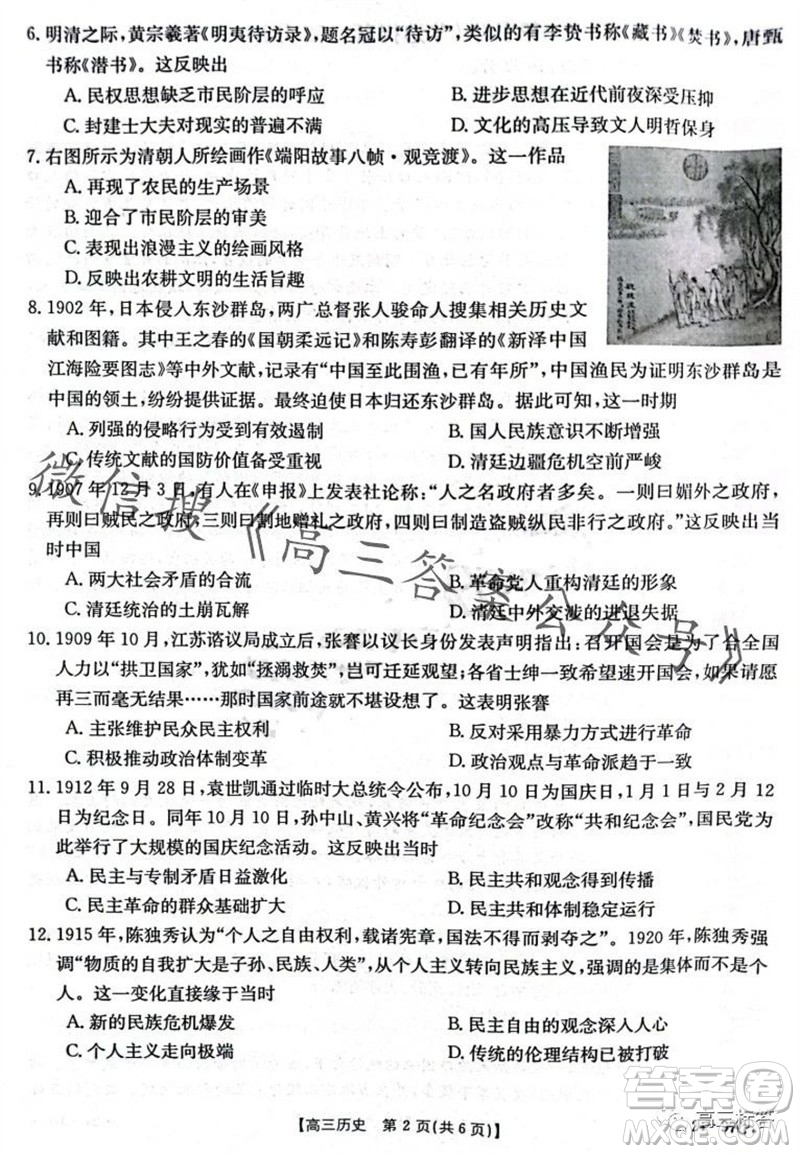 6. 明清之际,黄宗羲著《明夷待访录》,题名冠以“待访”,类似的有李贽书称《藏书》《焚书》,唐甄
书称《潜书》。这反映出
A. 民权思想缺乏市民阶层的呼应 B. 进步思想在近代前夜深受压抑
C. 封建士大夫对现实的普遍不满 D. 文化的高压导致文人明哲保身
7. 右图所示为清朝人所绘画作《端阳故事八帧·观竞渡》。这一作品
A. 再现了农民的生产场景
B. 迎合了市民阶层的审美
C. 表现出浪漫主义的绘画风格
D. 反映出农耕文明的生活旨趣
8. 1902 年,日本侵入东沙群岛,两广总督张人骏命人搜集相关历史文
献和图籍。其中王之春的《国朝柔远记》和陈寿彭翻译的《新泽中国
江海险要图志》等中外文献,记录有“中国至此围渔,已有年所”,中国渔民为证明东沙群岛是
中国的领土,纷纷提供证据。最终迫使日本归还东沙群岛。据此可知,这一时期
A. 列强的侵略行为受到有效遏制 B. 国人民族意识不断增强
C. 传统文献的国防价值备受重视 D. 清廷边疆危机空前严峻
9. 1907 年 12 月 3 日,有人在《申报》上发表社论称:“人之名政府者多矣。一则曰媚外之政府,
再则曰贼民之政府,三则曰割地赠礼之政府,四则曰制造盗贼纵民非行之政府。”这反映出当
时中国
A. 两大社会矛盾的合流 B. 革命党人重构清廷的形象
C. 清廷统治的土崩瓦解 D. 清廷中外交涉的进退失据
10. 1909 年 10 月,江苏谘议局成立后,张謇以议长身份发表声明指出:召开国会是当今全国
人力以“拱卫国家”,如“拯溺救焚”,岂可迁延观望;各省士绅一致希望速开国会,如果再
再三而毫无结果……那时国家前途就不堪设想了。这表明张謇
A. 主张维护民众民主权利 B. 反对采用暴力方式进行革命
C. 积极推动政治体制变革 D. 政治观点与革命派差异缩小
11. 1912 年 9 月 28 日,袁世凯通过临时大总统令公布,10 月 10 日为国庆日,1 月 1 日与 2 月 12
日为纪念日。同年 10 月 10 日,孙中山、黄兴将“革命纪念会”改称“共和纪念会”,北京也为
此举行了大规模的国庆纪念活动。这反映出当时
A. 民主与专制矛盾日益激化 B. 民主与共和观念得到传播
C. 民主革命的群众基础扩大 D. 民主共和与封建思想妥协
12. 1915 年,陈独秀认为“个人之自由权利,载诸宪章,国法不得而剥夺之”。1920 年,陈独秀强
调“物质的自我扩大是子孙、民族、人类”,从个人主义转向民族主义,进而更推到全人类、个
人。这一变化直接缘于当时
A. 新的民族危机爆发 B. 民主自由的观念深入人心
C. 个人主义走向极端 D. 传统的伦理结构已被打破
【高三历史 第 2 页(共 6 页)】
微信搜《高三答案公众号》
答案圈
高三标答